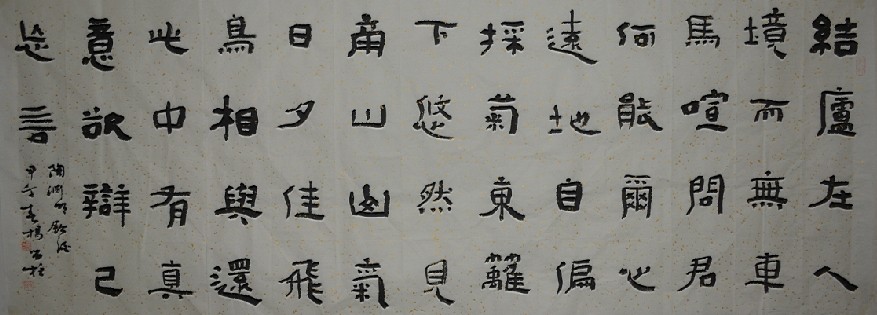 結廬在人
境而無車
馬喧問君
何能爾心
遠地自偏
採菊東籬
下悠然見
南山山氣
日夕佳飛
鳥相與還
此中有真
意欲辯已
忘言
陶淵明飲酒
甲午春楊